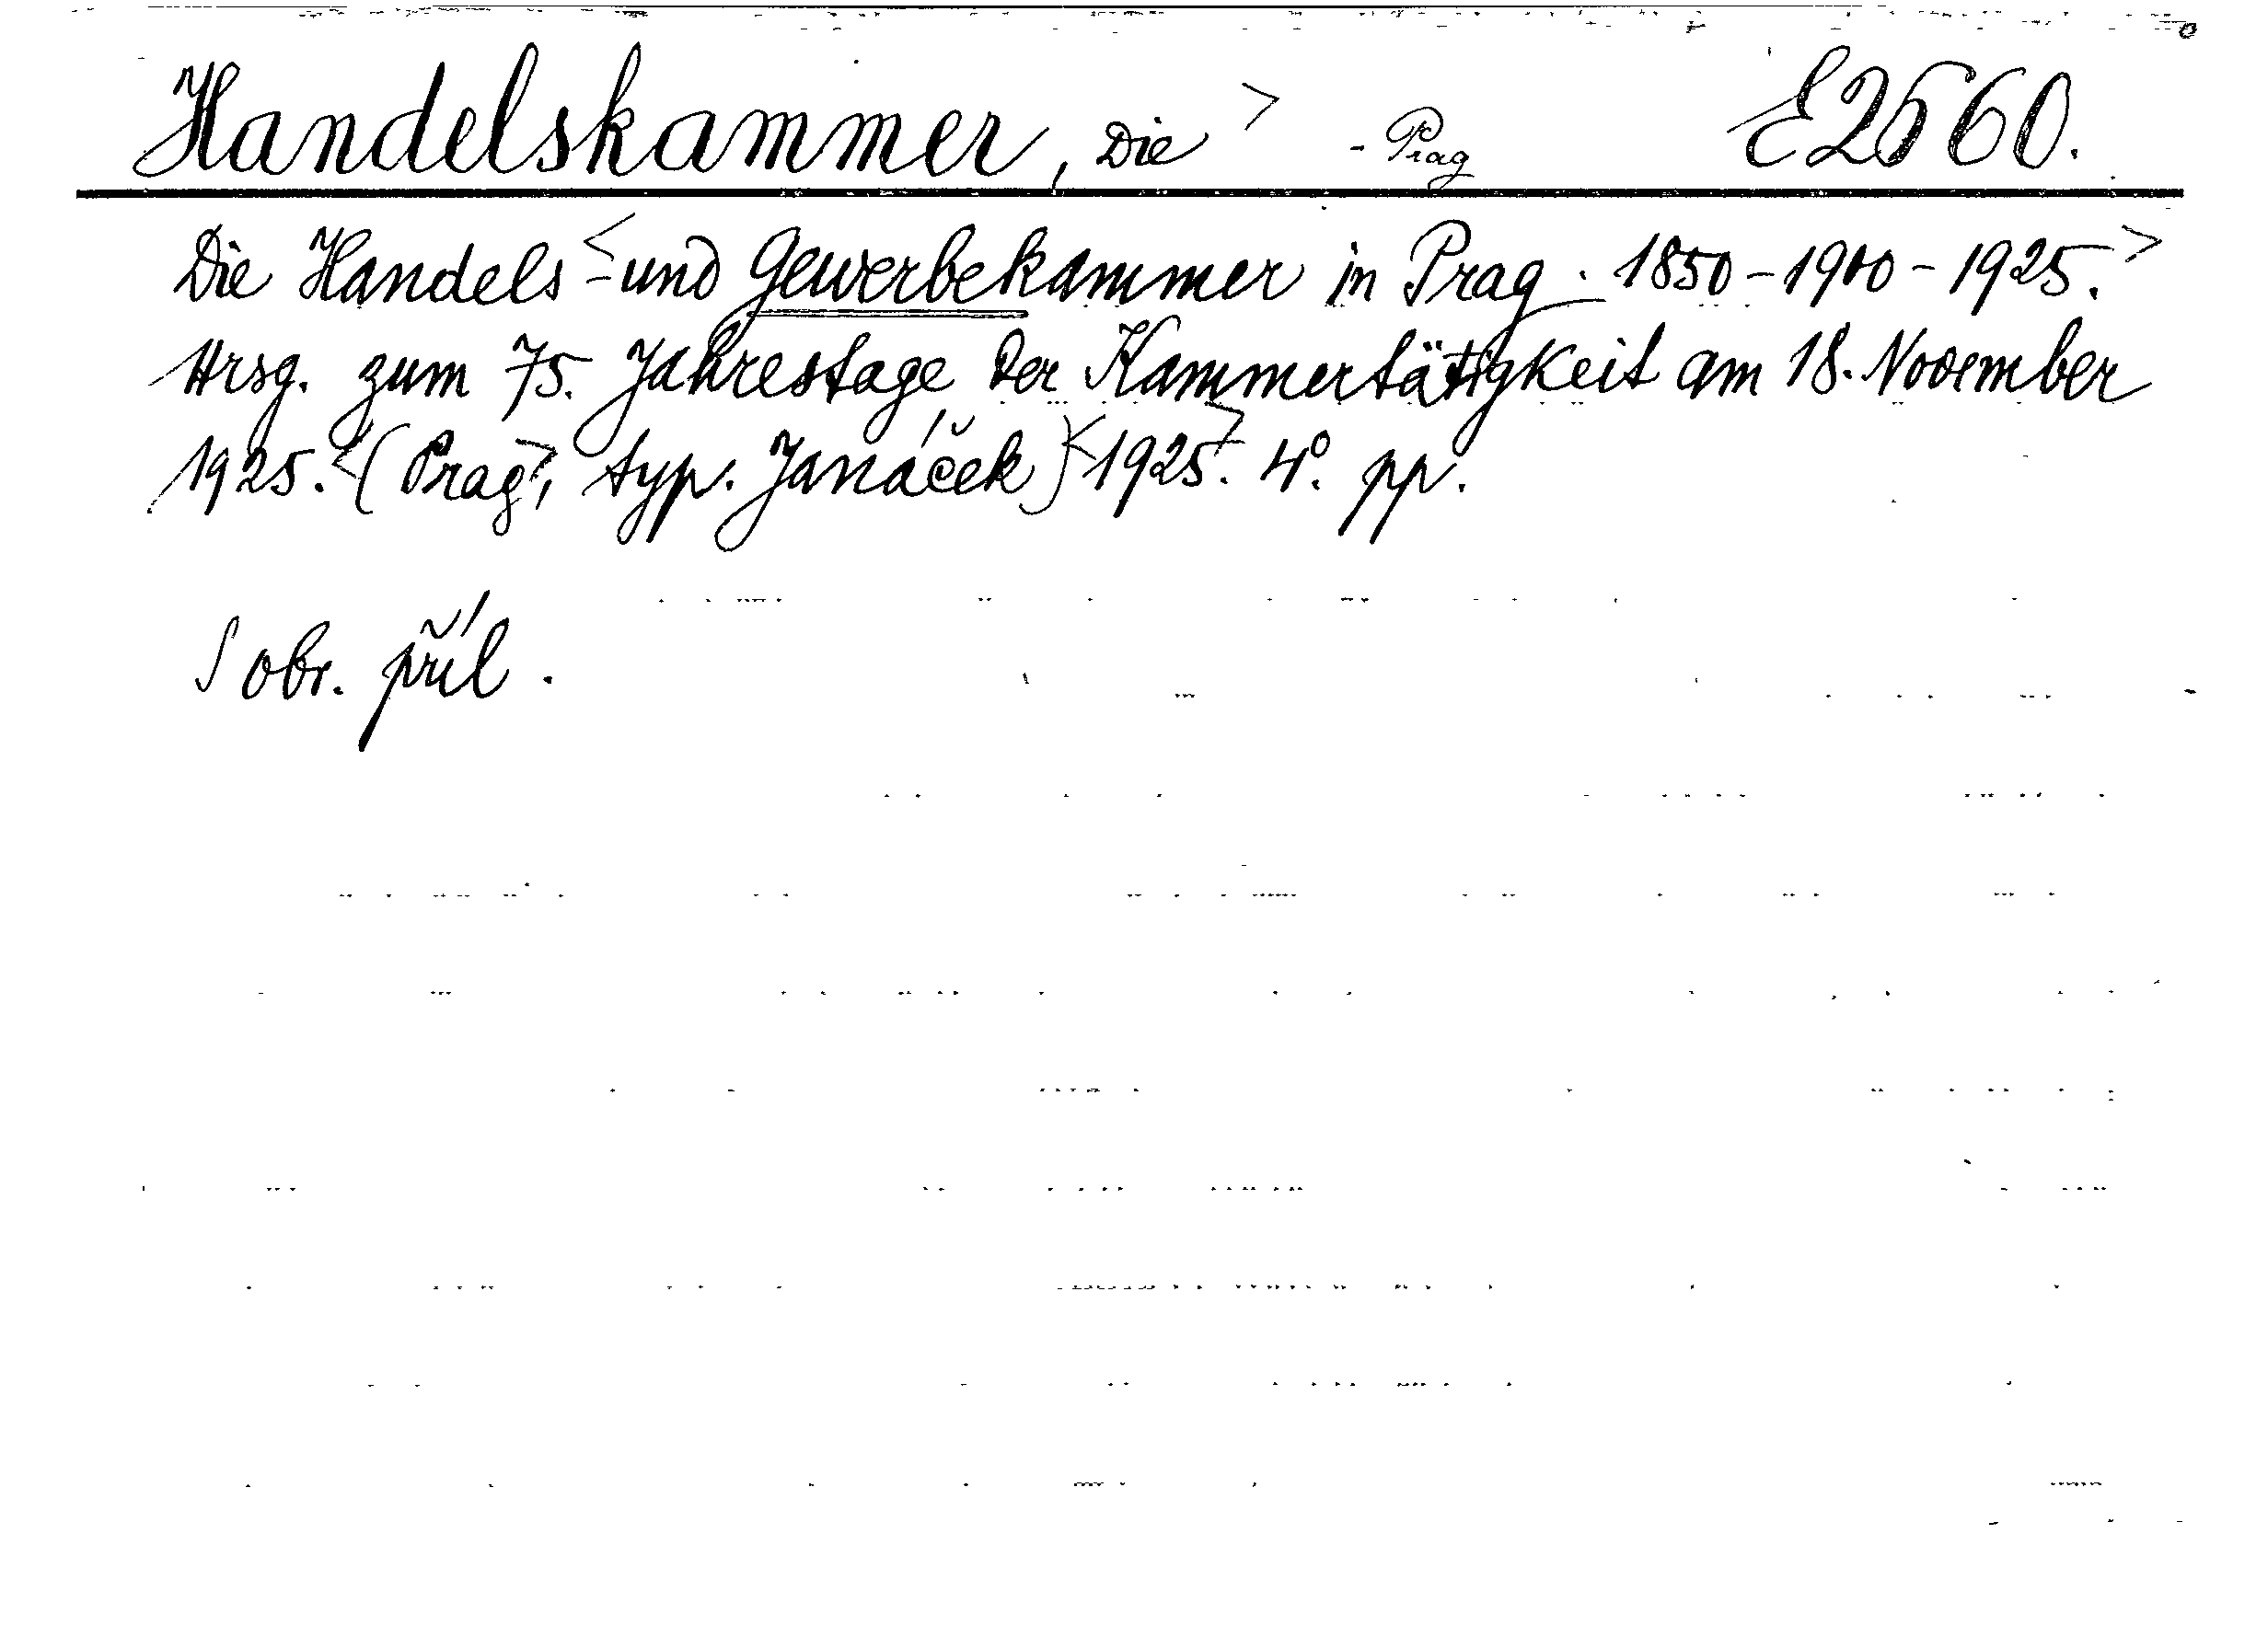 Handelskammer, Die > - Prag E2560.
Die Handels <- und Gewerbekammer in Prag. 1850 - 1900 - 1925. >
Hrsg. zum 75. Jahrestage der Kammertätigkeit am 18. November
1925. < (Prag >, typ. Janáček) < 1925 >. 4°. pp.
S obr. příl.